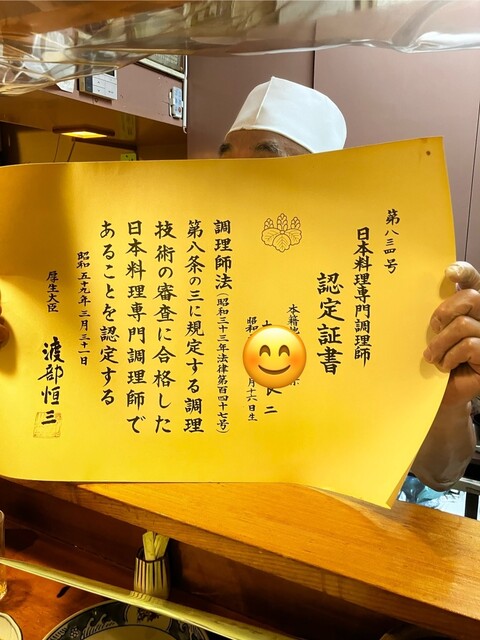 第八三四号
日本料理専門調理師
認定証書
本籍
昭和 月十六日生
調理師法(昭和三十三年法律第百四十七号)
第八条の三に規定する調理
技術の審査に合格した
日本料理専門調理師で
あることを認定する
昭和五十九年三月三十一日
厚生大臣 渡部恒三